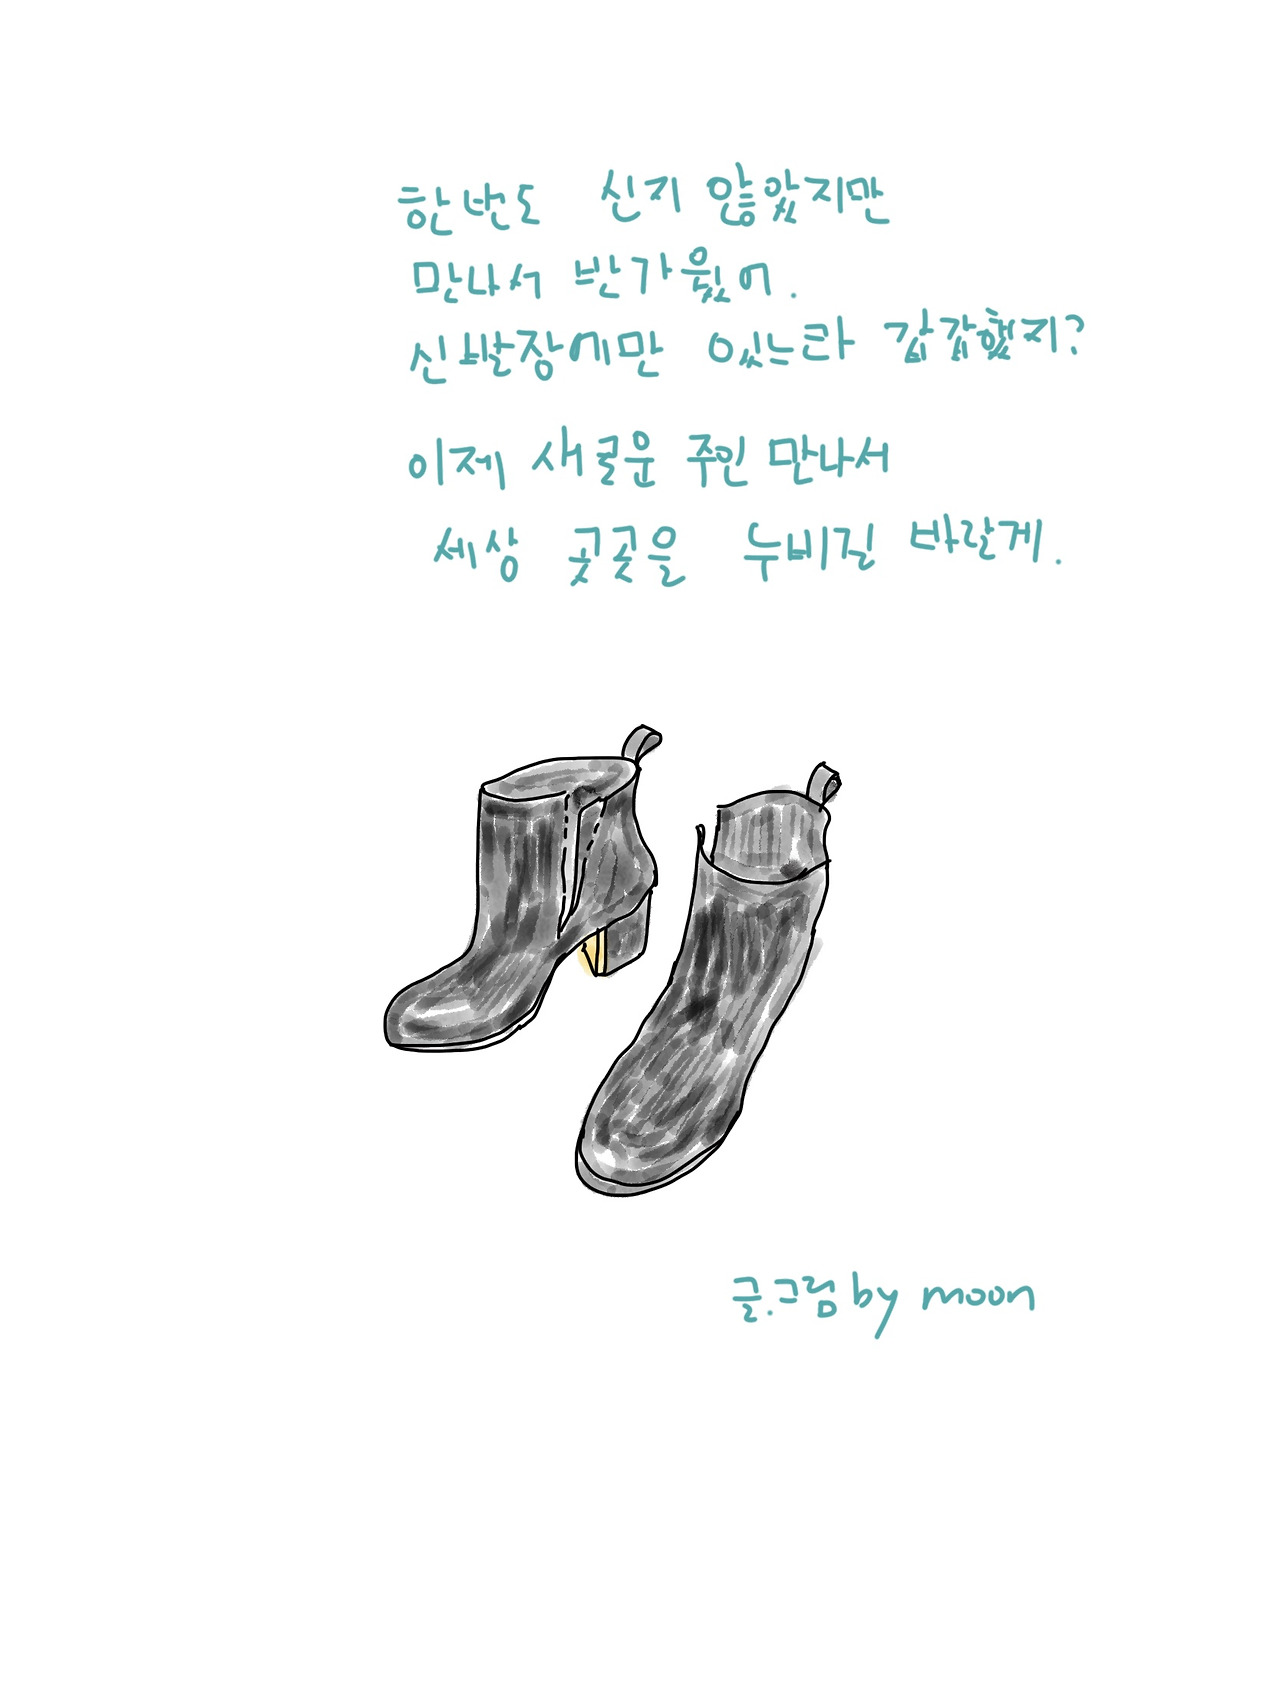 한번도 신지 않았지만
만나서 반가웠어.
신발장에만 있느라 갑갑했지?
이제 새로운 주인 만나서
세상 곳곳을 누비길 바랄게.
글.그림 by moon